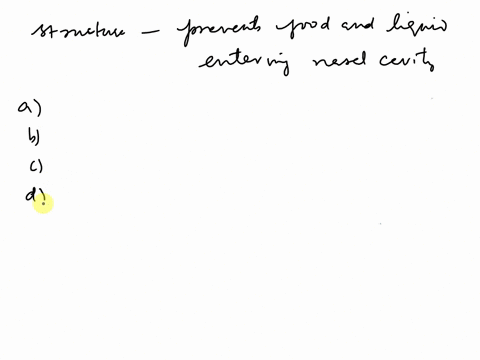 structure — prevents food and liquid
entering nasel cavity
a)
b)
c)
d)